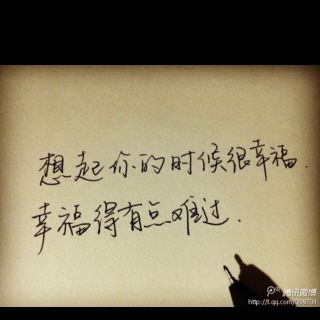 想起你的时候很幸福.
幸福得有点难过.
腾讯微博